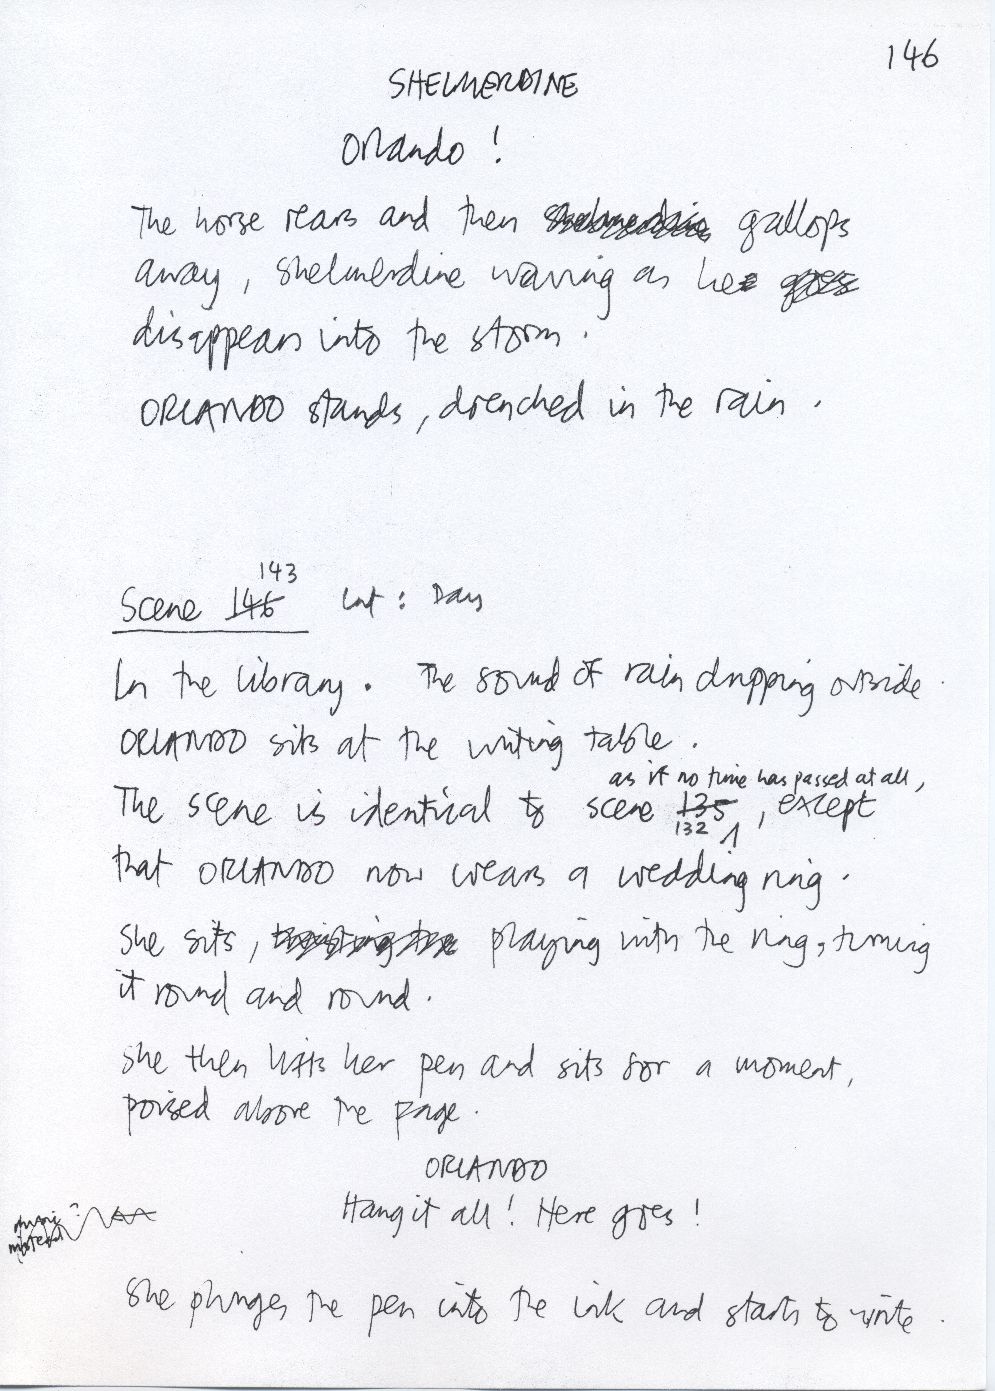 146
SHELMERDINE
Orlando !
The horse rears and then gallops
away, Shelmerdine waving as he
disappears into the storm.
ORLANDO stands, drenched in the rain.
143
Scene 146 Int : Day
In the library. The sound of rain dripping outside.
ORLANDO sits at the writing table.
as if no time has passed at all,
The scene is identical to scene 135, except
132
that ORLANDO now wears a wedding ring.
She sits, playing with the ring, turning
it round and round.
She then lifts her pen and sits for a moment,
poised above the page.
ORLANDO
Hang it all! Here goes!
She plunges the pen into the ink and starts to write.